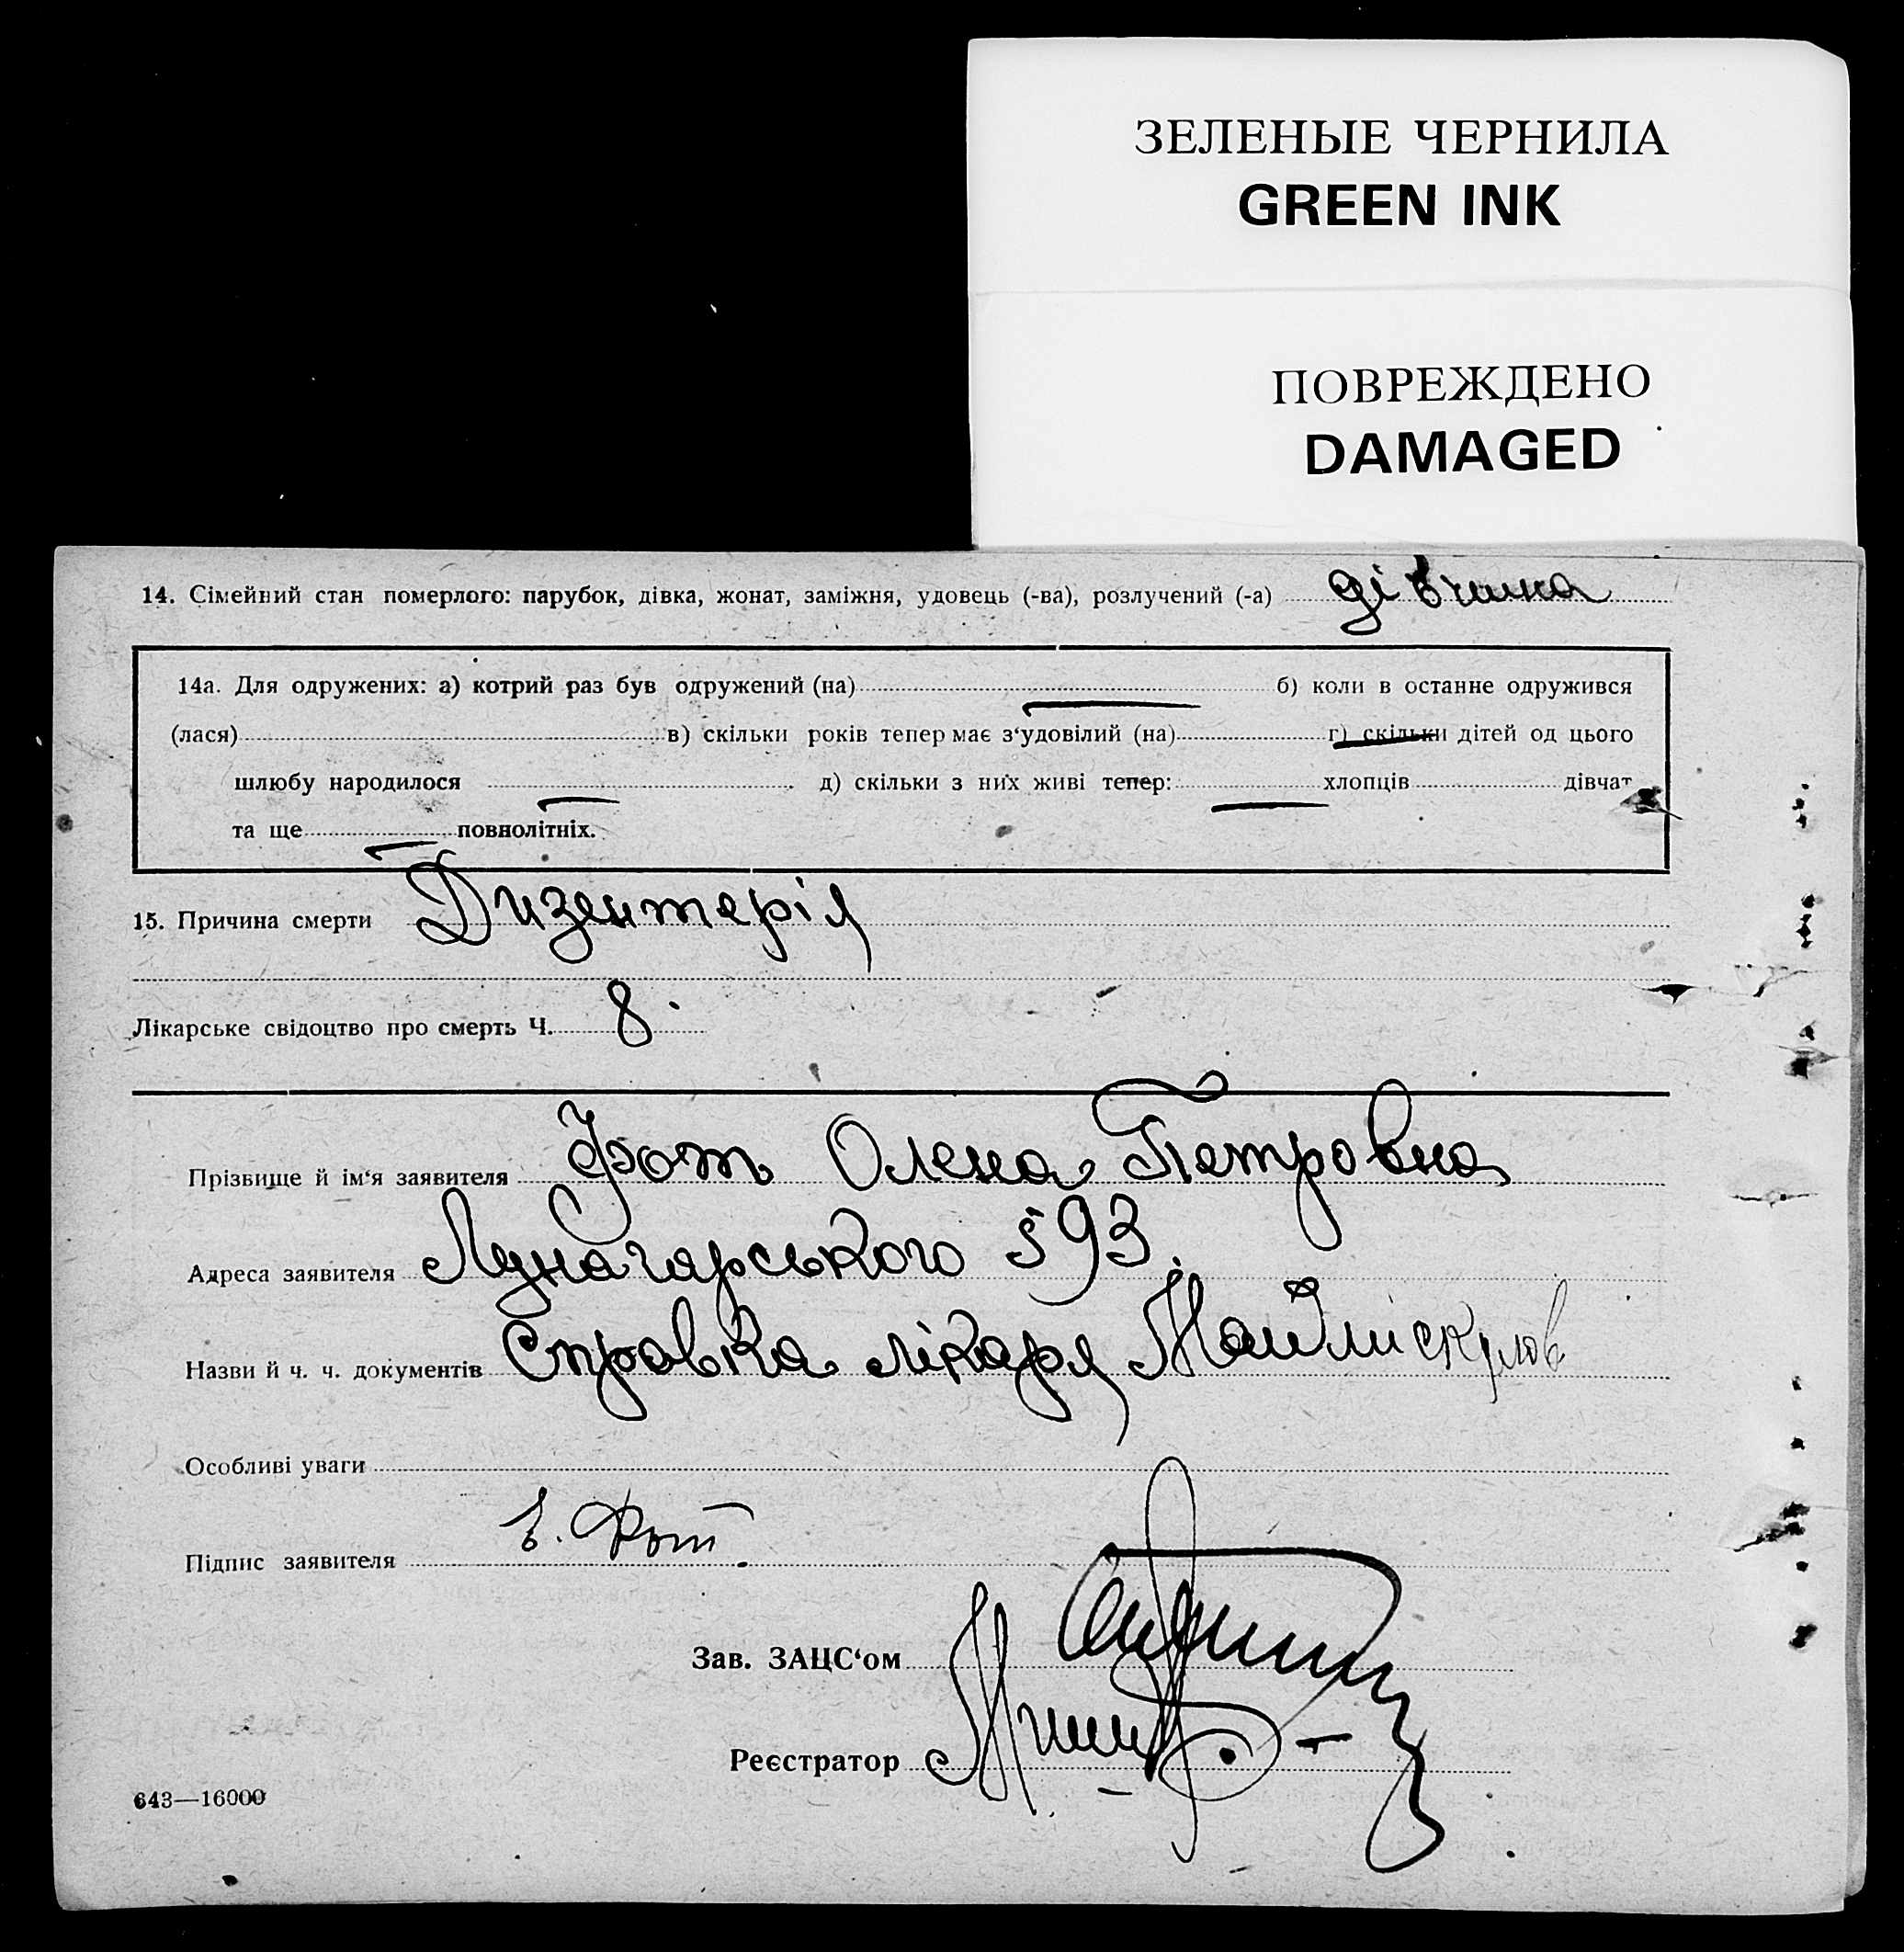 ЗЕЛЕНЫЕ ЧЕРНИЛА
GREEN INK
ПОВРЕЖДЕНО
DAMAGED
14. Сімейний стан померлого: парубок, дівка, жонат, заміжня, удовець (-ва), розлучений (-а) дівчина
14а. Для одружених: а) котрий раз був одружений (на) б) коли в останне одружився
(лася) в) скільки років тепер має з‘удовілий (на) г) скільки дітей од цього
шлюбу народилося д) скільки з них живі тепер: хлопців дівчат
та ще повнолітніх.
15. Причина смерти Дизентерія
Лікарське свідоцтво про смерть Ч. 8.
Прізвище й ім‘я заявителя Фот Олена Петровна
Адреса заявителя Луначарського 93.
Назви й ч. ч. документів Справка лікаря
Особливі уваги
Підпис заявителя Е. Фот.
Зав. ЗАЦС‘ом
Реєстратор
643—16000